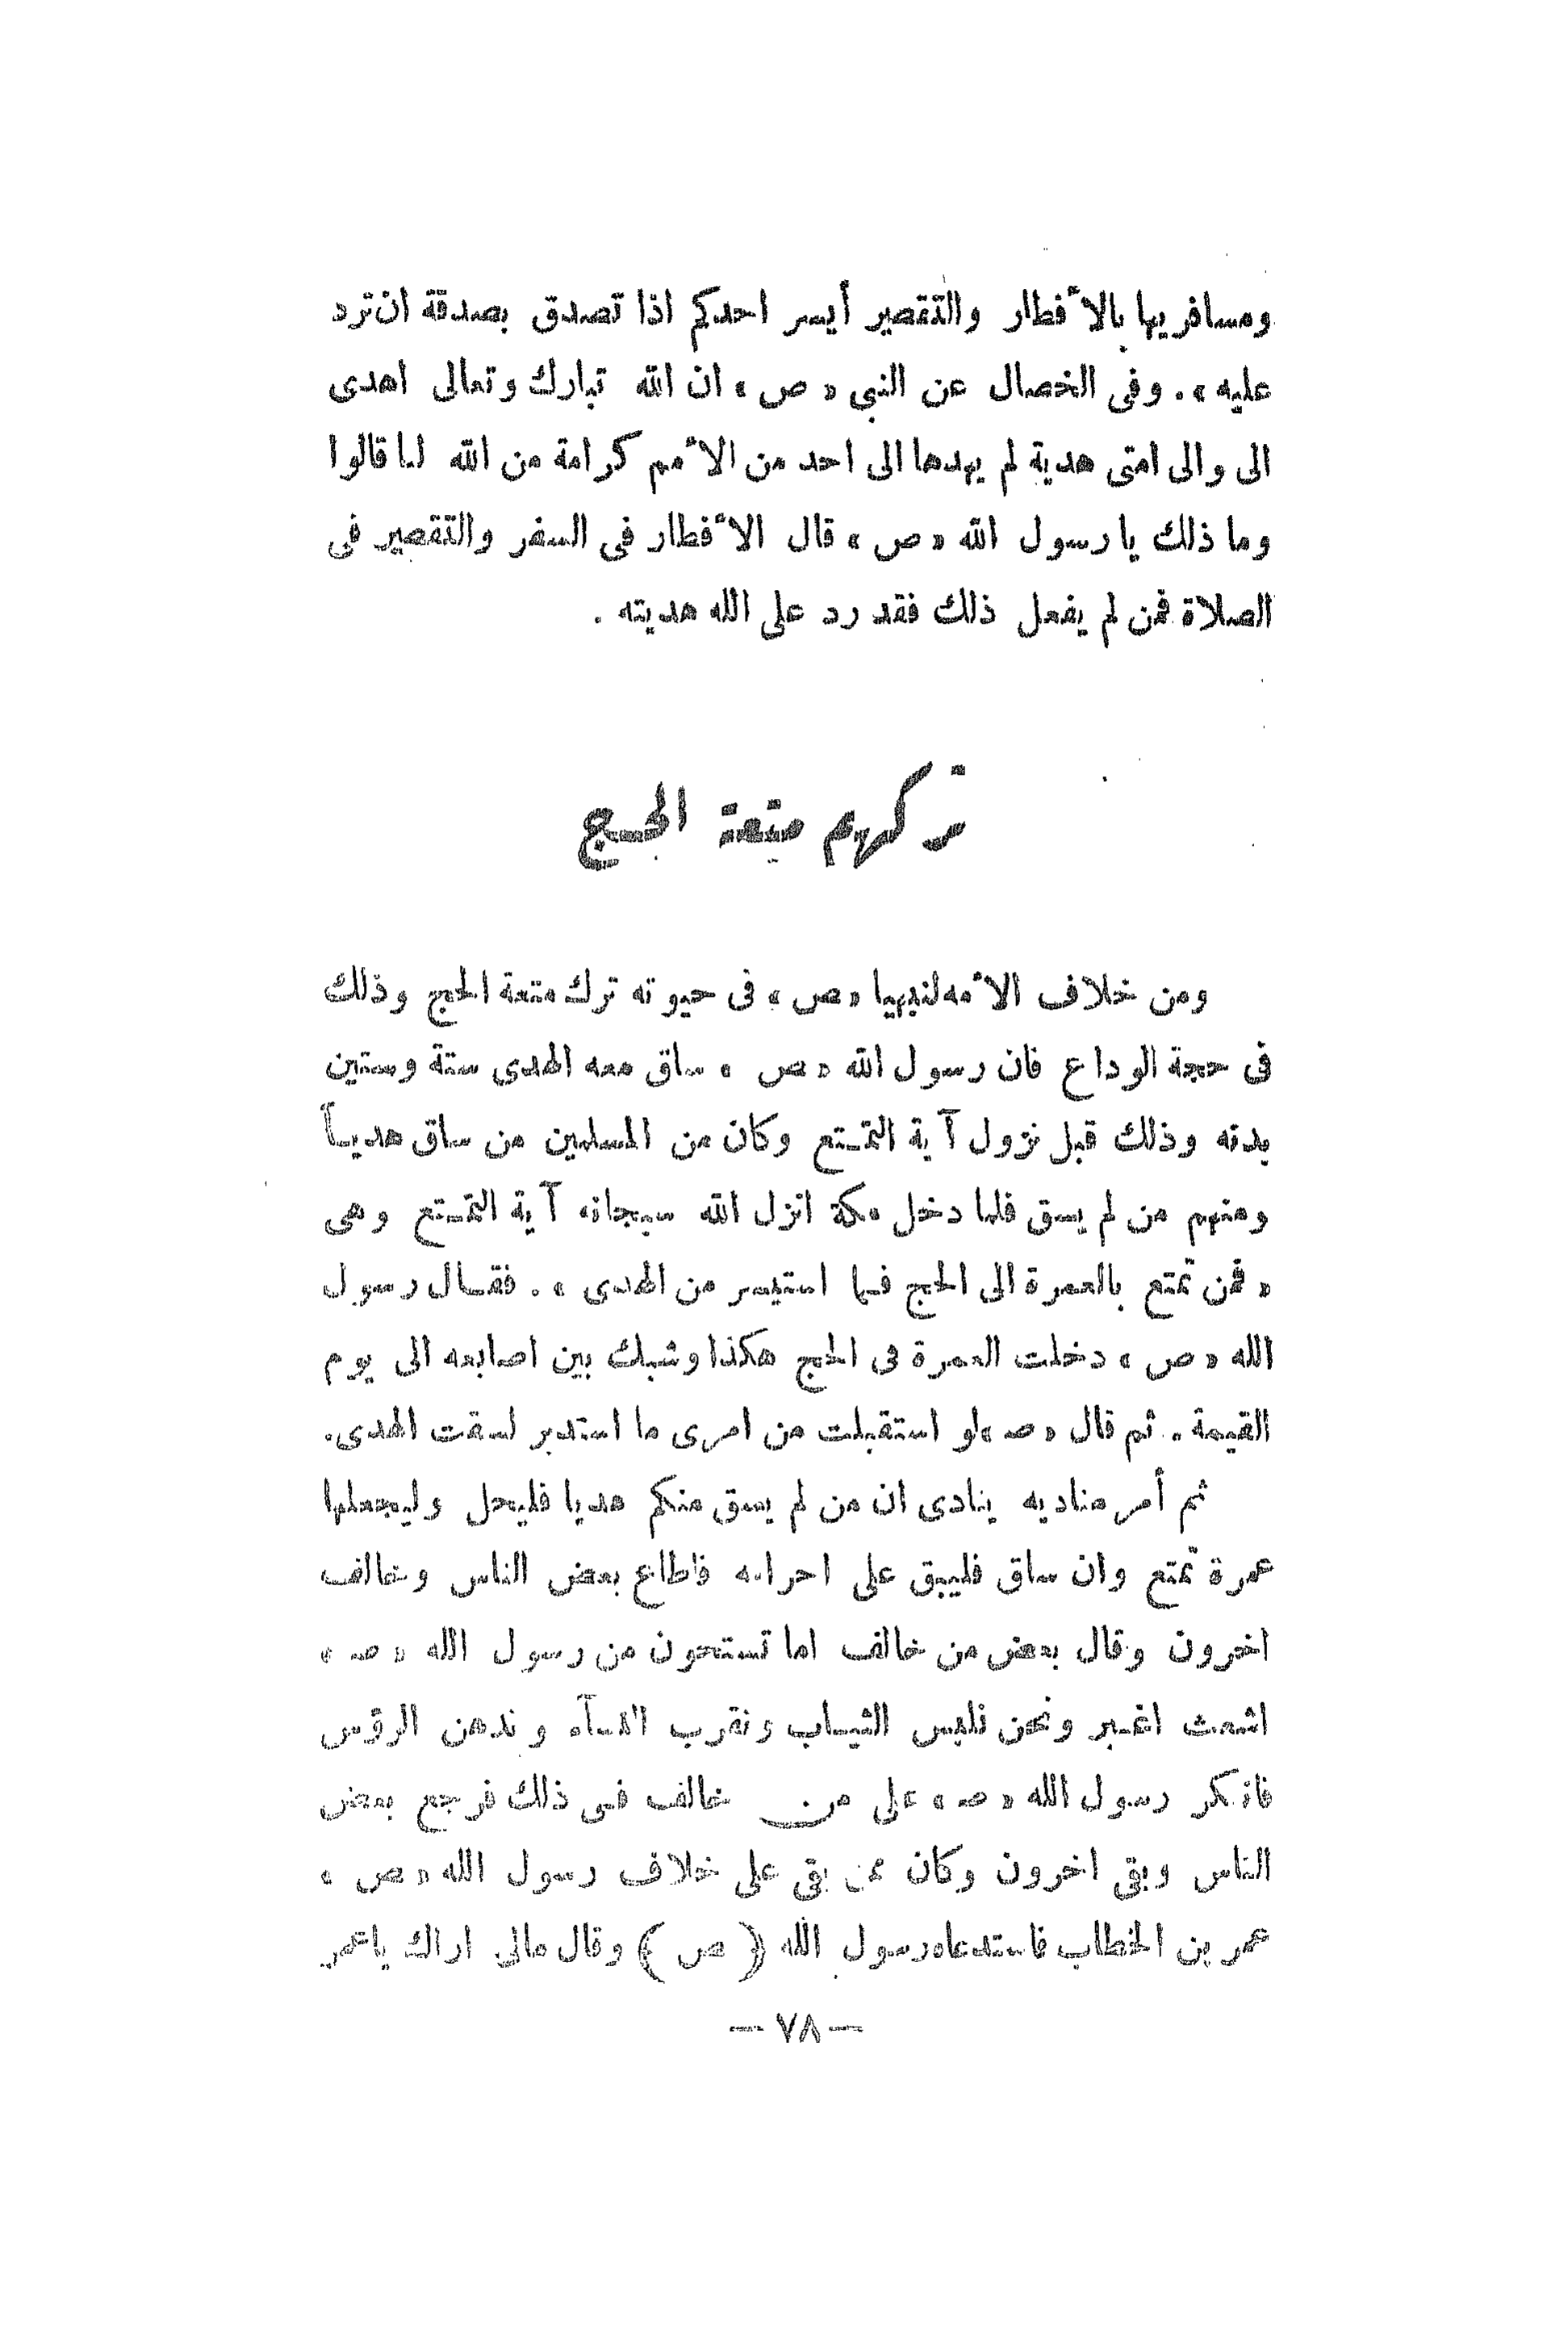 ومسافريها بالأفطار والتقصير أيسر احدكم اذا تصدق بصدقة ان ترد
عليه » . وفى الخصال عن النبي « ص » ان الله تبارك وتعالى اهدى
الى والى امتى هدية لم يهدها الى احد من الأمم كرامة من الله لنا قالوا
وما ذلك يا رسول الله « ص » قال الأفطار فى السفر والتقصير فى
الصلاة فمن لم يفعل ذلك فقد رد على الله هديته .
تركهم متعة الحج
ومن خلاف الأمه لنبيها « ص » فى حيوته ترك متعة الحج وذلك
فى حجة الوداع فان رسول الله « ص » ساق معه الهدى ستة وستين
بدنه وذلك قبل نزول آية التمتع وكان من المسلمين من ساق هدياً
ومنهم من لم يسق فلما دخل مكة انزل الله سبحانه آية التمتع وهى
« فمن تمتع بالعمرة الى الحج فما استيسر من الهدى » . فقال رسول
الله « ص » دخلت العمرة فى الحج هكذا وشبك بين اصابعه الى يوم
القيمة . ثم قال « صـ » لو استقبلت من امرى ما استدبر لسقت الهدى.
ثم أمر مناديه ينادى ان من لم يسق منكم هديا فليحل وليجعلها
عمرة تمتع وان ساق فليبق على احرامه فاطاع بعض الناس وخالف
اخرون وقال بعض من خالف اما تستحون من رسول الله « صـ »
اشعث اغبر ونحن نلبس الثياب ونقرب النسآء وندهن الرؤس
فانكر رسول الله « صـ » على من خالف فى ذلك فرجع بعض
الناس وبقى اخرون وكان ممن بقى على خلاف رسول الله « ص »
عمر بن الخطاب فاستدعاه رسول الله ( ص ) وقال مالى اراك ياعمر
— ٧٨ —